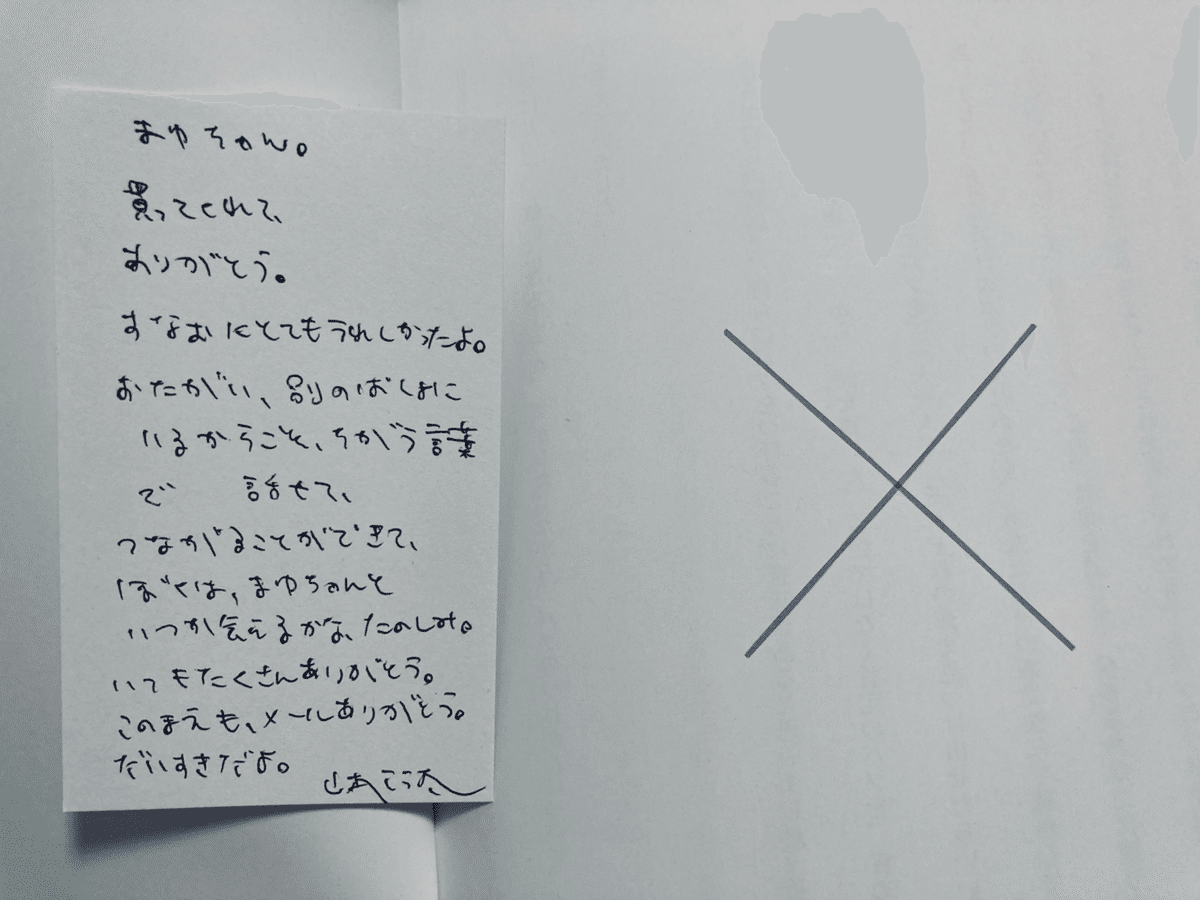 まゆちゃん。
買ってくれて、
ありがとう。
すなおにとてもうれしかったよ。
おたがい、別のばしょに
いるからこそ、ちがう言葉
で 話せて、
つながることができて、
ぼくは、まゆちゃんと
いつか会えるかな、たのしみ。
いつもたくさんありがとう。
このまえも、メールありがとう。
だいすきだよ。